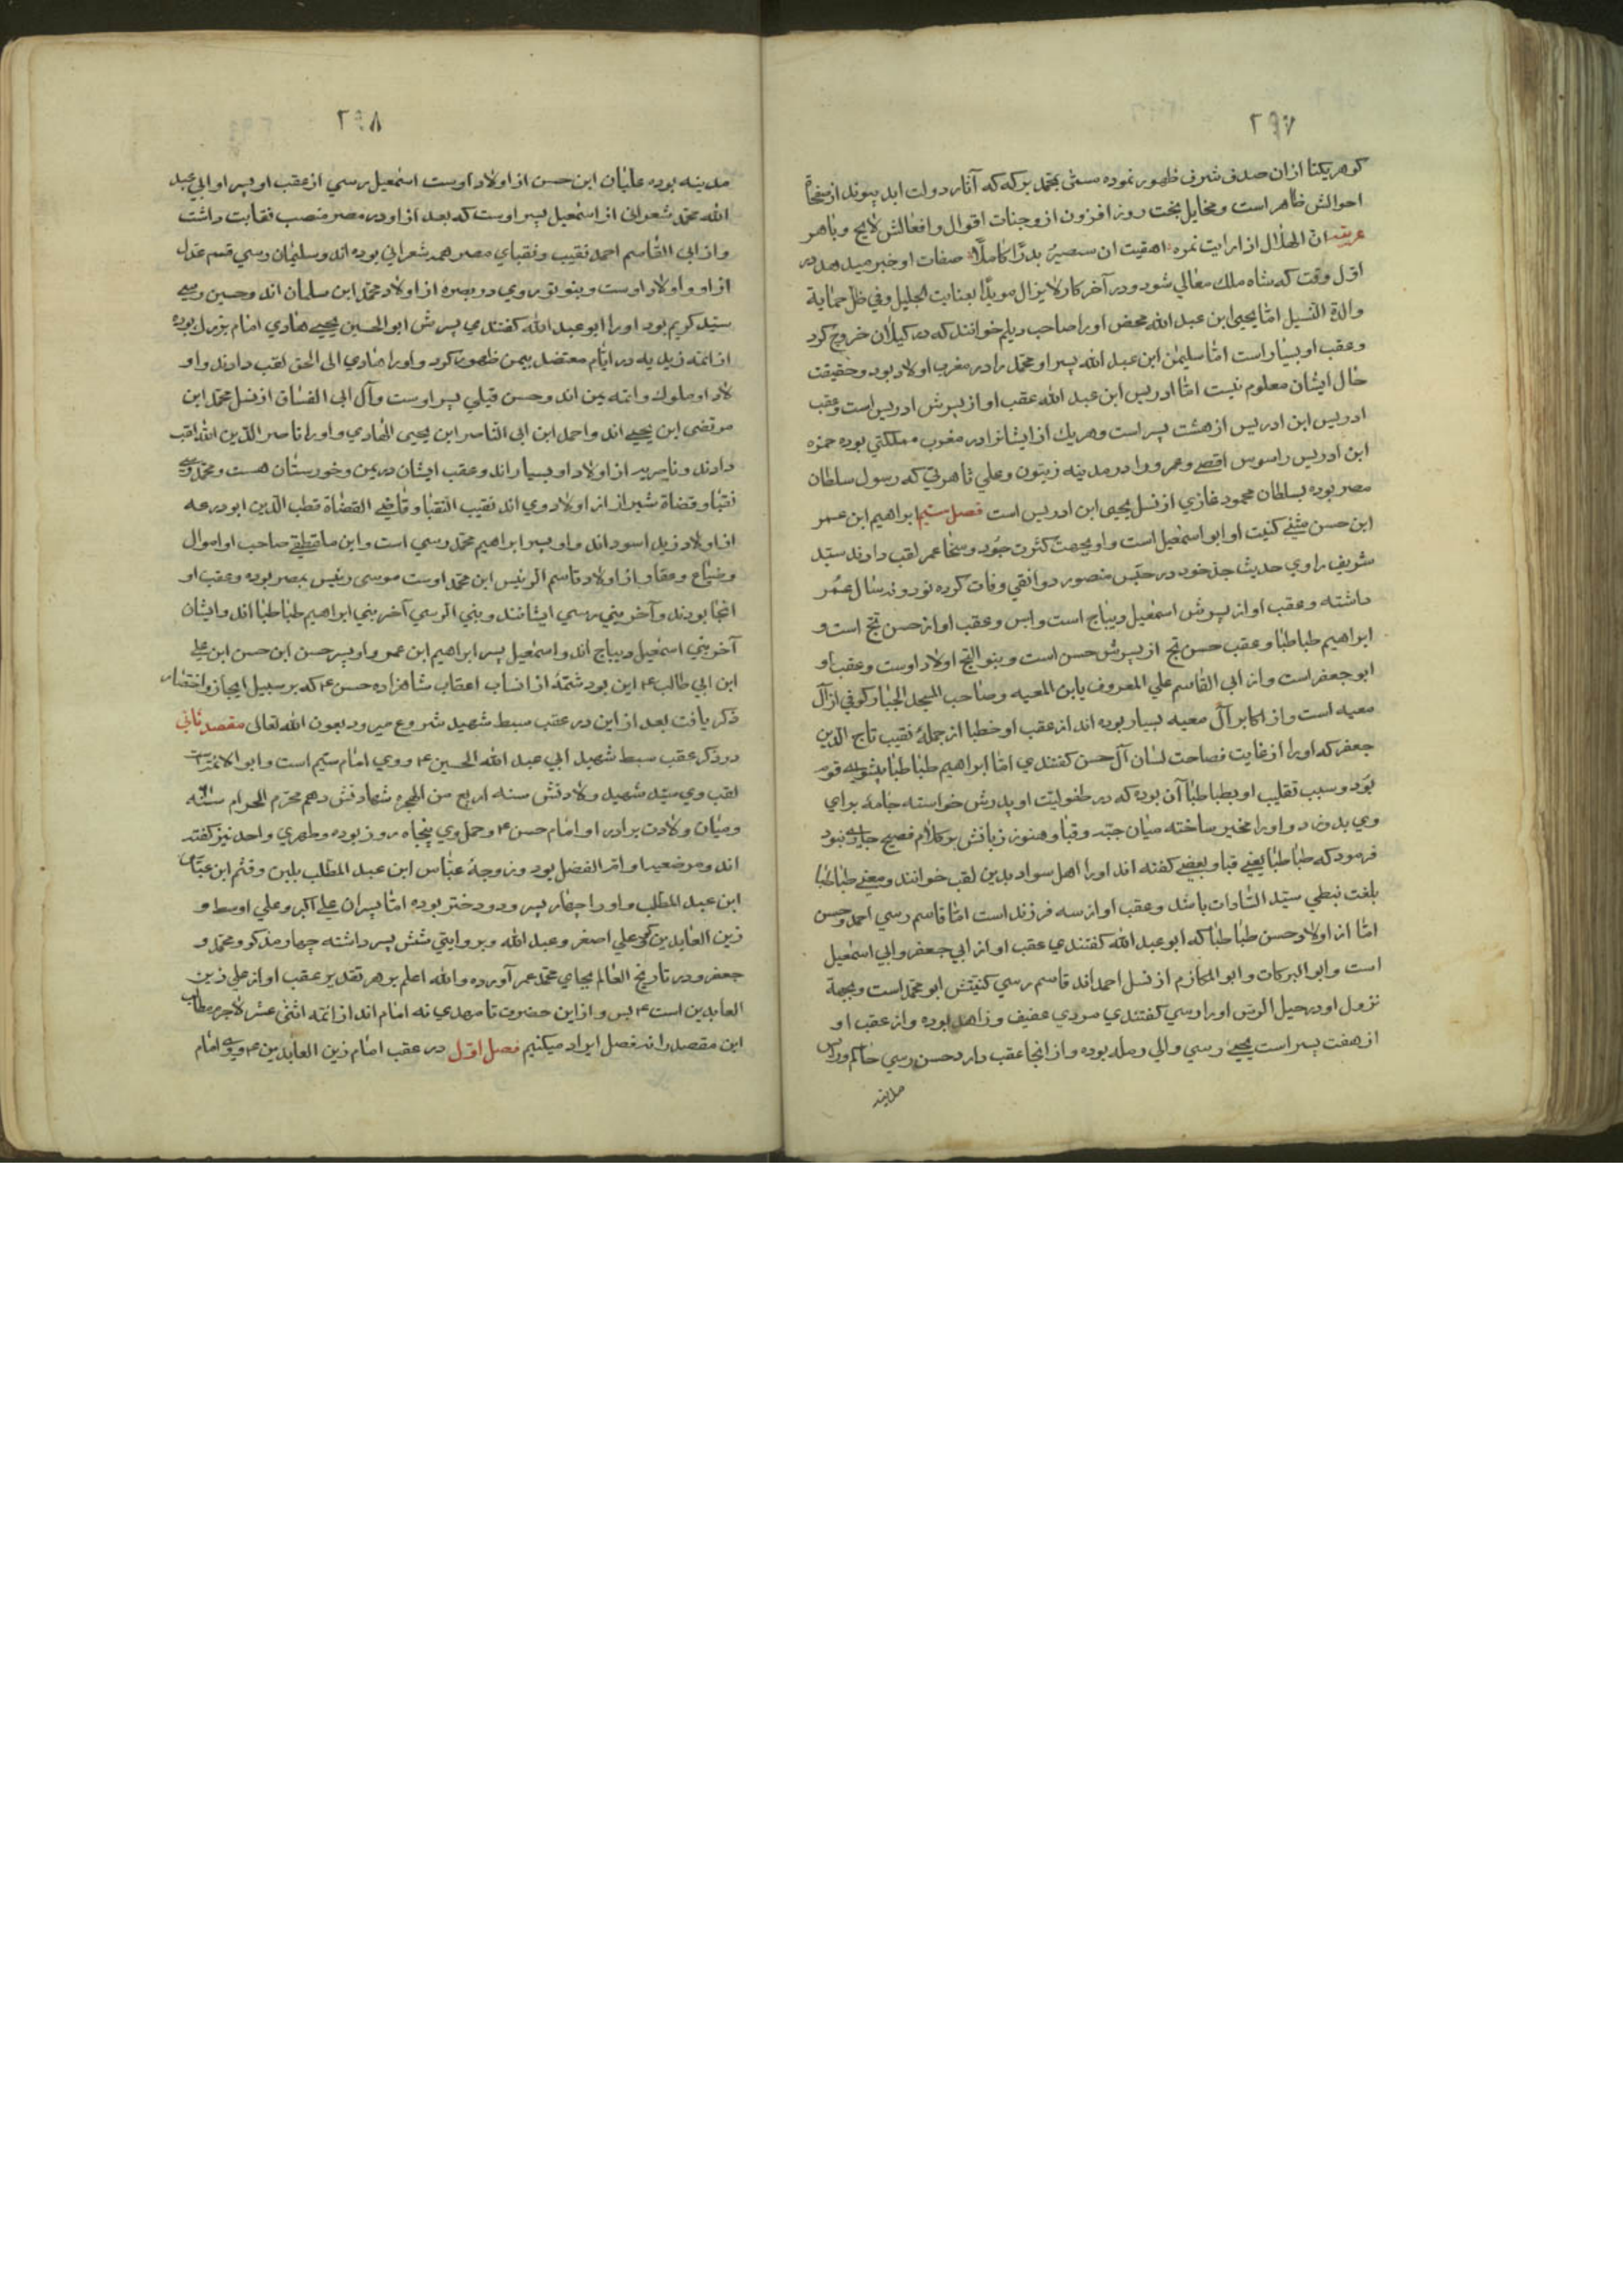 ۲۹۷
كوهر يكتا ازان صدف شرف ظهور نموده مسمى بمحمد بركه كه آثار دولت ابد پيوند از صفحات
احوالش ظاهر است و مخايل بخت روز افزون از وجنات اقوال و افعالش لايح و باهر
ان الهلال اذا رايت نموه ايقنت ان سيصير بدرا كاملا صفات او خبر ميدهد در
اول وقت كه شاه ملك معالي شود و در آخر كار لايزال مويدا بعنايت الجليل وفي ظل حماية
والدة النسيل اما يحيى ابن عبد الله محض اورا صاحب ديلم خوانند كه در كيلان خروج كرد
وعقب او بسيار است اما سليمن ابن عبد الله پسر او محمد را در مغرب اولاد بود و حقيقت
حال ايشان معلوم نيست اما ادريس ابن عبد الله عقب او از پسرش ادريس است وعقب
ادريس ابن ادريس از هشت پسر است وهر يك از ايشانرا در مغرب مملكتي بوده حمزه
ابن ادريس را سوس اقصى وعمرو را در مدينه زيتون وعلي تاهرتي كه رسول سلطان
مصر بوده بسلطان محمود غازي از نسل يحيى ابن ادريس است فصل سيم ابراهيم ابن عمر
ابن حسن مثنى كنيت او ابو اسمعيل است و او بجهت كثرت جود وسخا عمر لقب دادند سيد
شريف راوي حديث جد خود در حبس منصور دوانقي وفات كرده نود و نه سال عمر
داشته وعقب او از پسرش اسمعيل ديباج است وبس وعقب او از حسن تج است و
ابراهيم طباطبا وعقب حسن تج از پسرش حسن است وبنو التج اولاد اوست وعقب او
ابو جعفر است واز ابي القاسم علي المعروف بابن المعيه وصاحب المسجد الجبار كوفي از آل
معيه است واز اكابر آل معيه بسيار بوده اند از عقب او خطبا از جمله نقيب تاج الدين
جعفر كه اورا از غايت فصاحت لسان آل حسن كفتندي اما ابراهيم طباطبا پيشواي قوم
بود وسبب تقليب او بطباطبا آن بوده كه در طفوليت او پدرش خواسته جامه براي
وي بدوزد و اورا مخير ساخته ميان جبه وقبا وهنوز زبانش بر كلام فصيح جاري نبود
فرمود كه طباطبا يعني قبا وبعضي كفته اند اورا اهل سواد بدين لقب خوانند ومعني طباطبا
بلغت نبطي سيد السادات باشد وعقب او از سه فرزند است اما قاسم رسي احمد وحسن
اما از اولاد حسن طباطبا كه ابو عبد الله كفتندي عقب او از ابي جعفر وابي اسمعيل
است وابو البركات وابو المكارم از نسل احمد اند قاسم رسي كنيتش ابو محمد است وبجهة
نزول او در جبل الرس اورا رسي كفتندي مردي عفيف وزاهد بوده واز عقب او
از هفت پسر است يحيى رسي والي رمله بوده واز انجا عقب دارد حسن رسي حاكم ورئيس
مدينه
۲۹۸
مدينه بوده عليان ابن حسن از اولاد اوست اسمعيل رسي از عقب او پسر او ابي عبد
الله محمد شعراني از اسمعيل پسر اوست كه بعد از او در مصر منصب نقابت داشت
واز ابي القاسم احمد نقيب ونقباي مصر همه شعراني بوده اند وسليمان رسي قسم عدل
از او و اولاد اوست وبنو توروي در بصره از اولاد محمد ابن سلمان اند وحسين رسي
سيد كريم بود اورا ابو عبد الله كفتندي پسرش ابو الحسين يحيى هادي امام بزرك بوده
از ائمه زيديه در ايام معتضد بيمن ظهور كرد و اورا هادي الى الحق لقب دادند و او
لاد او ملوك وائمه يمن اند وحسن قيلي پسر اوست وآل ابي الفسان از نسل محمد ابن
مرتضى ابن يحيى اند واحمد ابن ابي الناصر ابن يحيى الهادي و اورا ناصر الدين الله لقب
دادند وناصريه از اولاد او بسيار اند وعقب ايشان در يمن وخورستان هست ومحمد رسي
نقبا وقضاة شيراز از اولاد وي اند نقيب النقبا وقاضي القضاة قطب الدين ابو درعه
از اولاد زيد اسود اند و او پسر ابراهيم محمد رسي است وابن صاحب اموال
وضياع وعقار از اولاد قاسم الرئيس ابن محمد اوست موسى رئيس بمصر بوده وعقب او
انجا بودند وآخر بني رسي ايشانند وبني الرسي آخر بني ابراهيم طباطبا اند وايشان
آخر بني اسمعيل ديباج اند واسمعيل پسر ابراهيم ابن عمر و او پسر حسن ابن حسن ابن علي
ابن ابي طالب ع اين بود شتمه از انساب اعقاب شاهزاده حسن ع كه بر سبيل ايجاز واختصار
ذكر يافت بعد از اين در عقب سبط شهيد شروع ميرود بعون الله تعالى مقصد ثاني
در ذكر عقب سبط شهيد ابي عبد الله الحسين ع ووي امام سيم است وابو الائمه است
لقب وي سيد شهيد ولادتش سنه اربع من الهجره شهادتش دهم محرم الحرام سنه ۶۱
وميان ولادت برادر او امام حسن ع وحمل وي پنجاه روز بوده وطهري واحد نيز كفته
اند ومرضعه او ام الفضل بود زوجه عباس ابن عبد المطلب بلبن وقثم ابن عباس
ابن عبد المطلب و اورا چهار پسر ودو دختر بوده اما پسران علي اكبر وعلي اوسط و
زين العابدين كه وعلي اصغر وعبد الله وبروايتي شش پسر داشته چهار مذكور ومحمد و
جعفر ودر تاريخ العالم بجاي محمد عمر آورده والله اعلم بر هر تقدير عقب او از علي زين
العابدين است ع بس واز اين حضرت تا مهدي نه امام اند از ائمه اثنى عشر لاجرم مطالب
اين مقصد را نه فصل ايراد ميكنيم فصل اول در عقب امام زين العابدين ع ووي امام